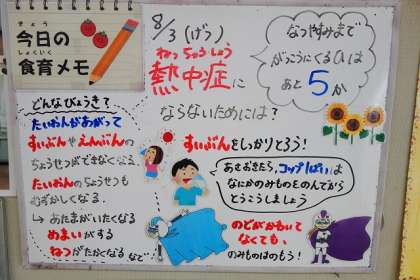 きょう
今日の
しょくいく
食育メモ
8/3(げつ)
ねっちゅうしょう
熱中症に
ならないためには?
なつやすみまで
がっこうにくるひは
あと5か
どんなびょうき?
たいおんがあがって
すいぶんやえんぶんの
ちょうせつができなくなる。
たいおんのちょうせつも
むずかしくなる。
→ あたまがいたくなる
めまいがする
ねつがたかくなる など
すいぶんをしかりとろう!
あさおきたら、コップ1ぱいは
なにかのみものをのんでから
とうこうしましょう
のどがかわいて
なくても、
のみものはのもう!